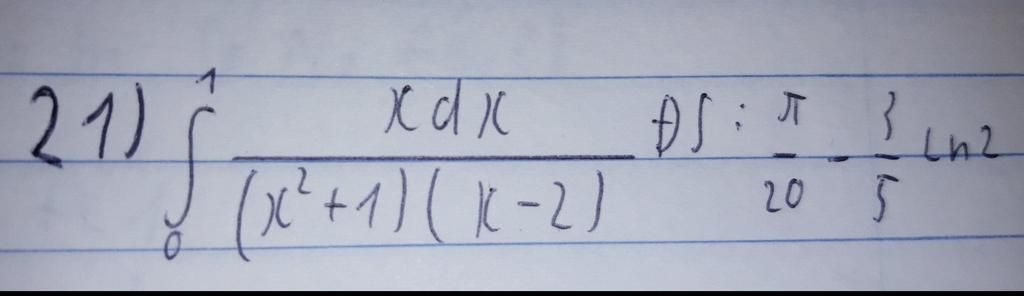 21) ∫₀¹ x dx / (x²+1)(x-2) ĐS: π/20 - 3/5 ln2